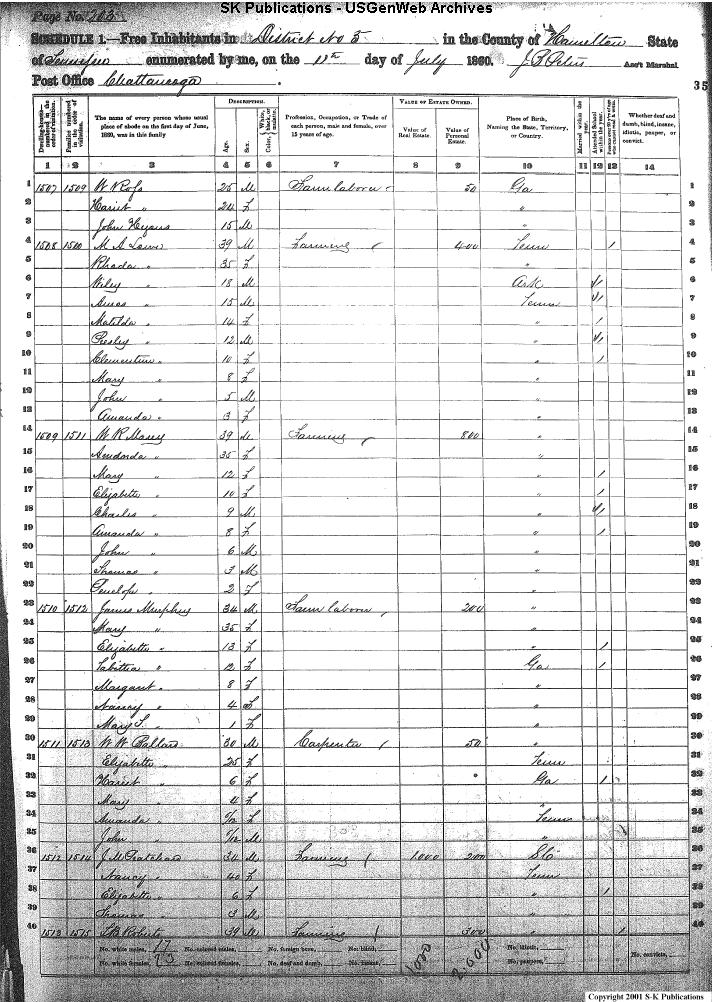 SK Publications - USGenWeb Archives
Page No. 203
SCHEDULE 1.—Free Inhabitants in District No 5 in the County of Hamilton State
of Tennessee enumerated by me, on the 11th day of July 1860. Ass't Marshal.
Post Office Chattanooga.
35
DESCRIPTION. VALUE OF ESTATE OWNED.
Dwelling-houses numbered in the order of visitation. Families numbered in the order of visitation. The name of every person whose usual place of abode on the first day of June, 1860, was in this family Age. Sex. Color, White, black, or mulatto. Profession, Occupation, or Trade of each person, male and female, over 15 years of age. Value of Real Estate. Value of Personal Estate. Place of Birth, Naming the State, Territory, or Country. Married within the year. Attended School within the year. Whether deaf and dumb, blind, insane, idiotic, pauper, or convict.
1 2 3 4 5 6 7 8 9 10 11 12 13 14
1 1507 1509 W R Ross 25 M Farm laborer 50 Ga 1
2 Hariet " 24 f " 2
3 John 15 M " 3
4 1508 1510 M A Lowe 39 M Farming 400 Tenn / 4
5 Rhoda " 35 f " 5
6 Wiley " 18 M Ark / 6
7 Amos " 15 M Tenn / 7
8 Matilda " 14 f " / 8
9 Presley " 12 M " / 9
10 Clementine " 10 f " / 10
11 Mary " 8 f " 11
12 John " 5 M " 12
13 Amanda " 3 f " 13
14 1509 1511 W R Maney 39 M Farming 800 " 14
15 " 35 f " 15
16 Mary " 12 f " / 16
17 Elizabeth " 10 f " / 17
18 Charles " 9 M " / 18
19 Amanda " 8 f " / 19
20 John " 6 M " 20
21 Thomas " 3 M " 21
22 Penelope " 2 f " 22
23 1510 1512 James Murphey 34 M Farm laborer 200 " 23
24 Mary " 35 f " 24
25 Elizabeth " 13 f " / 25
26 Tabitha " 12 f Ga / 26
27 Margaret " 8 f " 27
28 Nancy " 4 f " 28
29 Mary S. " 1 f " 29
30 1511 1513 W W Ballard 30 M Carpenter 50 " 30
31 Elizabeth " 25 f Tenn 31
32 Hariet " 6 f Ga / 32
33 Mary " 4 f " 33
34 Amanda " f Tenn 34
35 John " M " 35
36 1512 1514 J. M. Pratchard 34 M Farming 1,000 200 SC 36
37 Nancy " 40 f Tenn 37
38 Elizabeth " 6 f " / 38
39 Thomas " 3 M " 39
40 1513 1515 Roberts 39 M Farming 300 " / 40
No. white males, 17 No. colored males, No. foreign born, No. blind, 1000 2.000 No. idiotic, No. convicts,
No. white females, 23 No. colored females, No. deaf and dumb, No. insane, No. paupers,
Copyright 2001 S-K Publications